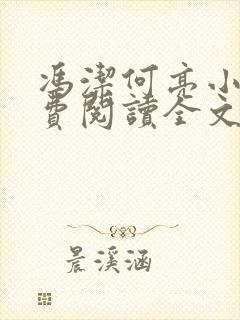 馮潔何亮小
費閱讀全文
晨溪涵